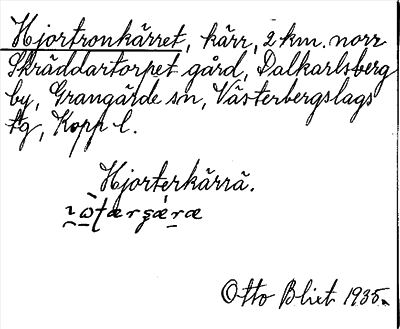 Hjortronkärret, kärr, 2 km. norr
Skräddartorpet gård, Dalkarlsberg
by, Grangärde sn, Västerbergslags
tg, Kopp. l.
Hjorterkärrä.
Otto Blixt 1935.